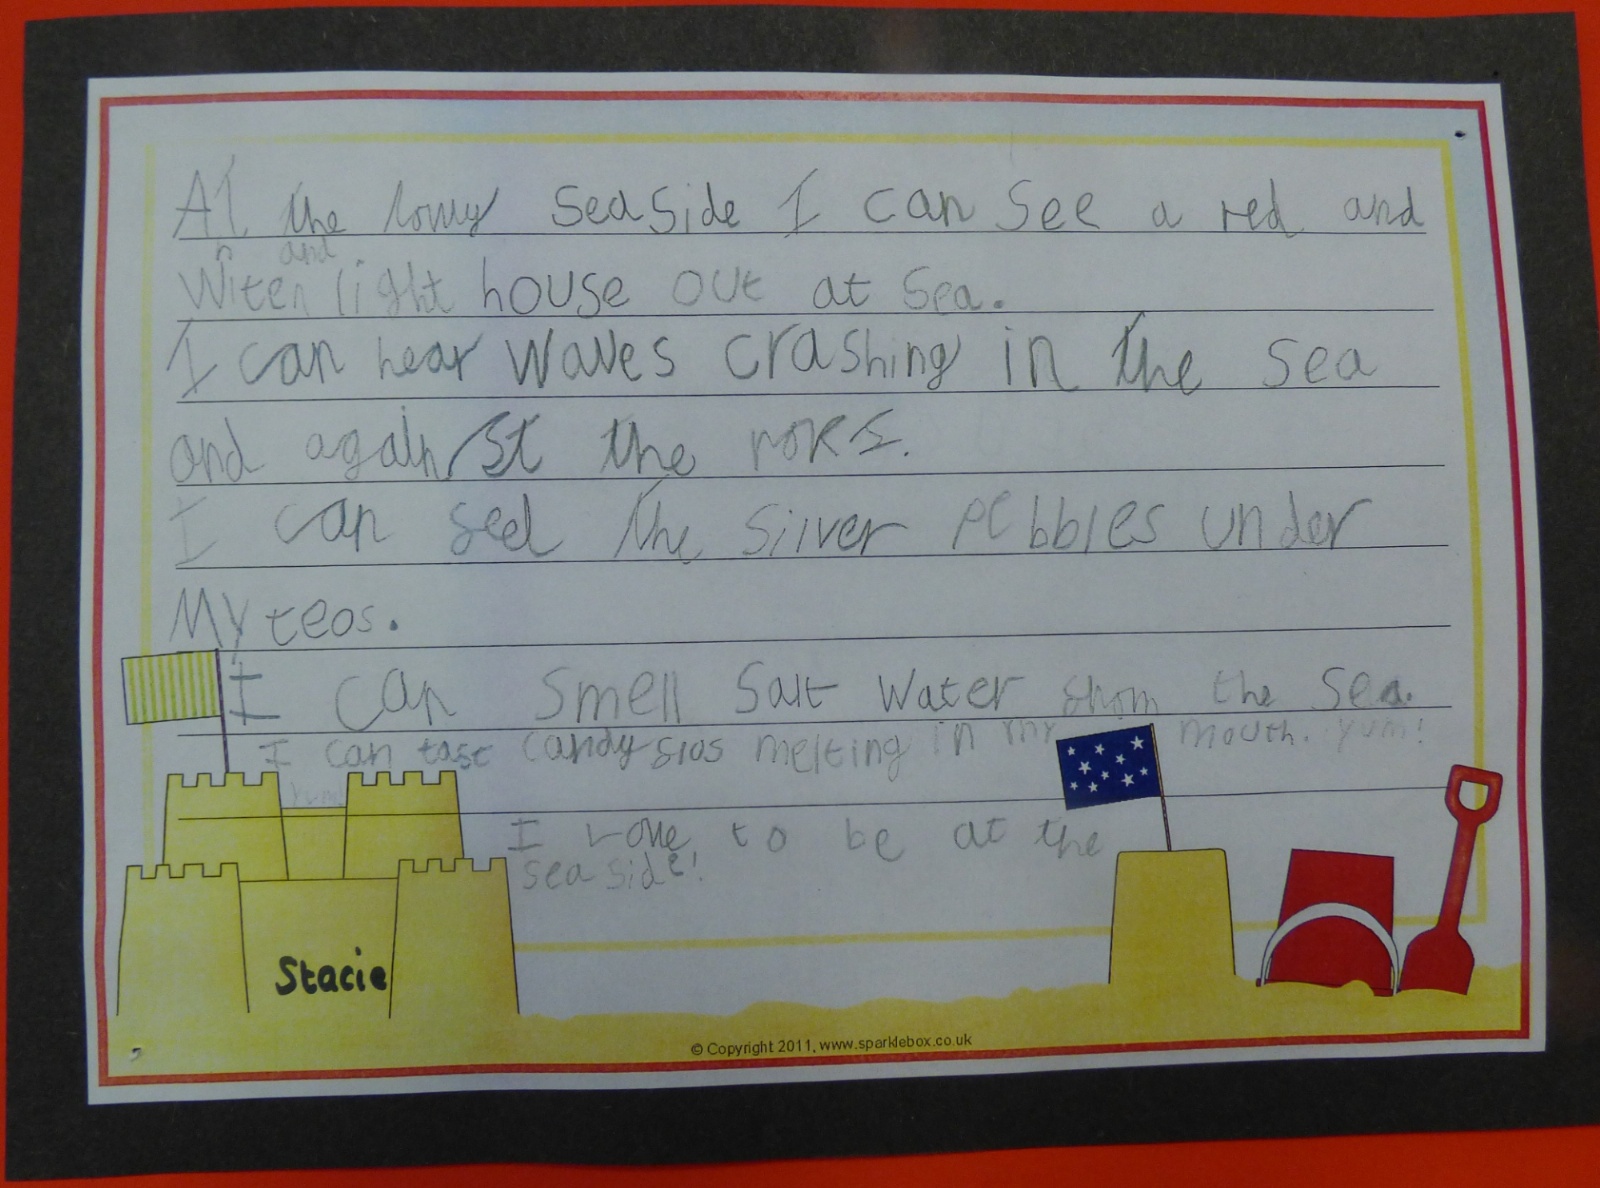 At the lovly seaside I can see a red and
Witen light house out at sea.
I can hear waves crashing in the sea
and against the roks.
I can seel the silver pebbles under
My teos.
I can smell salt water from the sea.
I can tast candy melting in my mouth. yum!
I Love to be at the
seaside!
Stacie
© Copyright 2011, www.sparklebox.co.uk